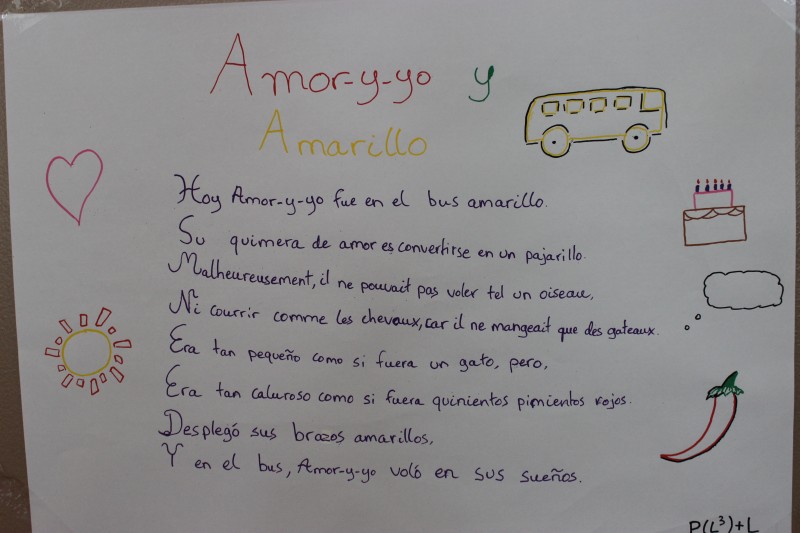 Amor-y-yo y
Amarillo
Hoy Amor-y-yo fue en el bus amarillo.
Su quimera de amor es convertirse en un pajarillo.
Malheureusement, il ne pouvait pas voler tel un oiseau,
Ni courrir comme les chevaux, car il ne mangeait que des gateaux.
Era tan pequeño como si fuera un gato, pero,
Era tan caluroso como si fuera quinientos pimientos rojos.
Desplegó sus brazos amarillos,
Y en el bus, Amor-y-yo voló en sus sueños.
P(L³)+L